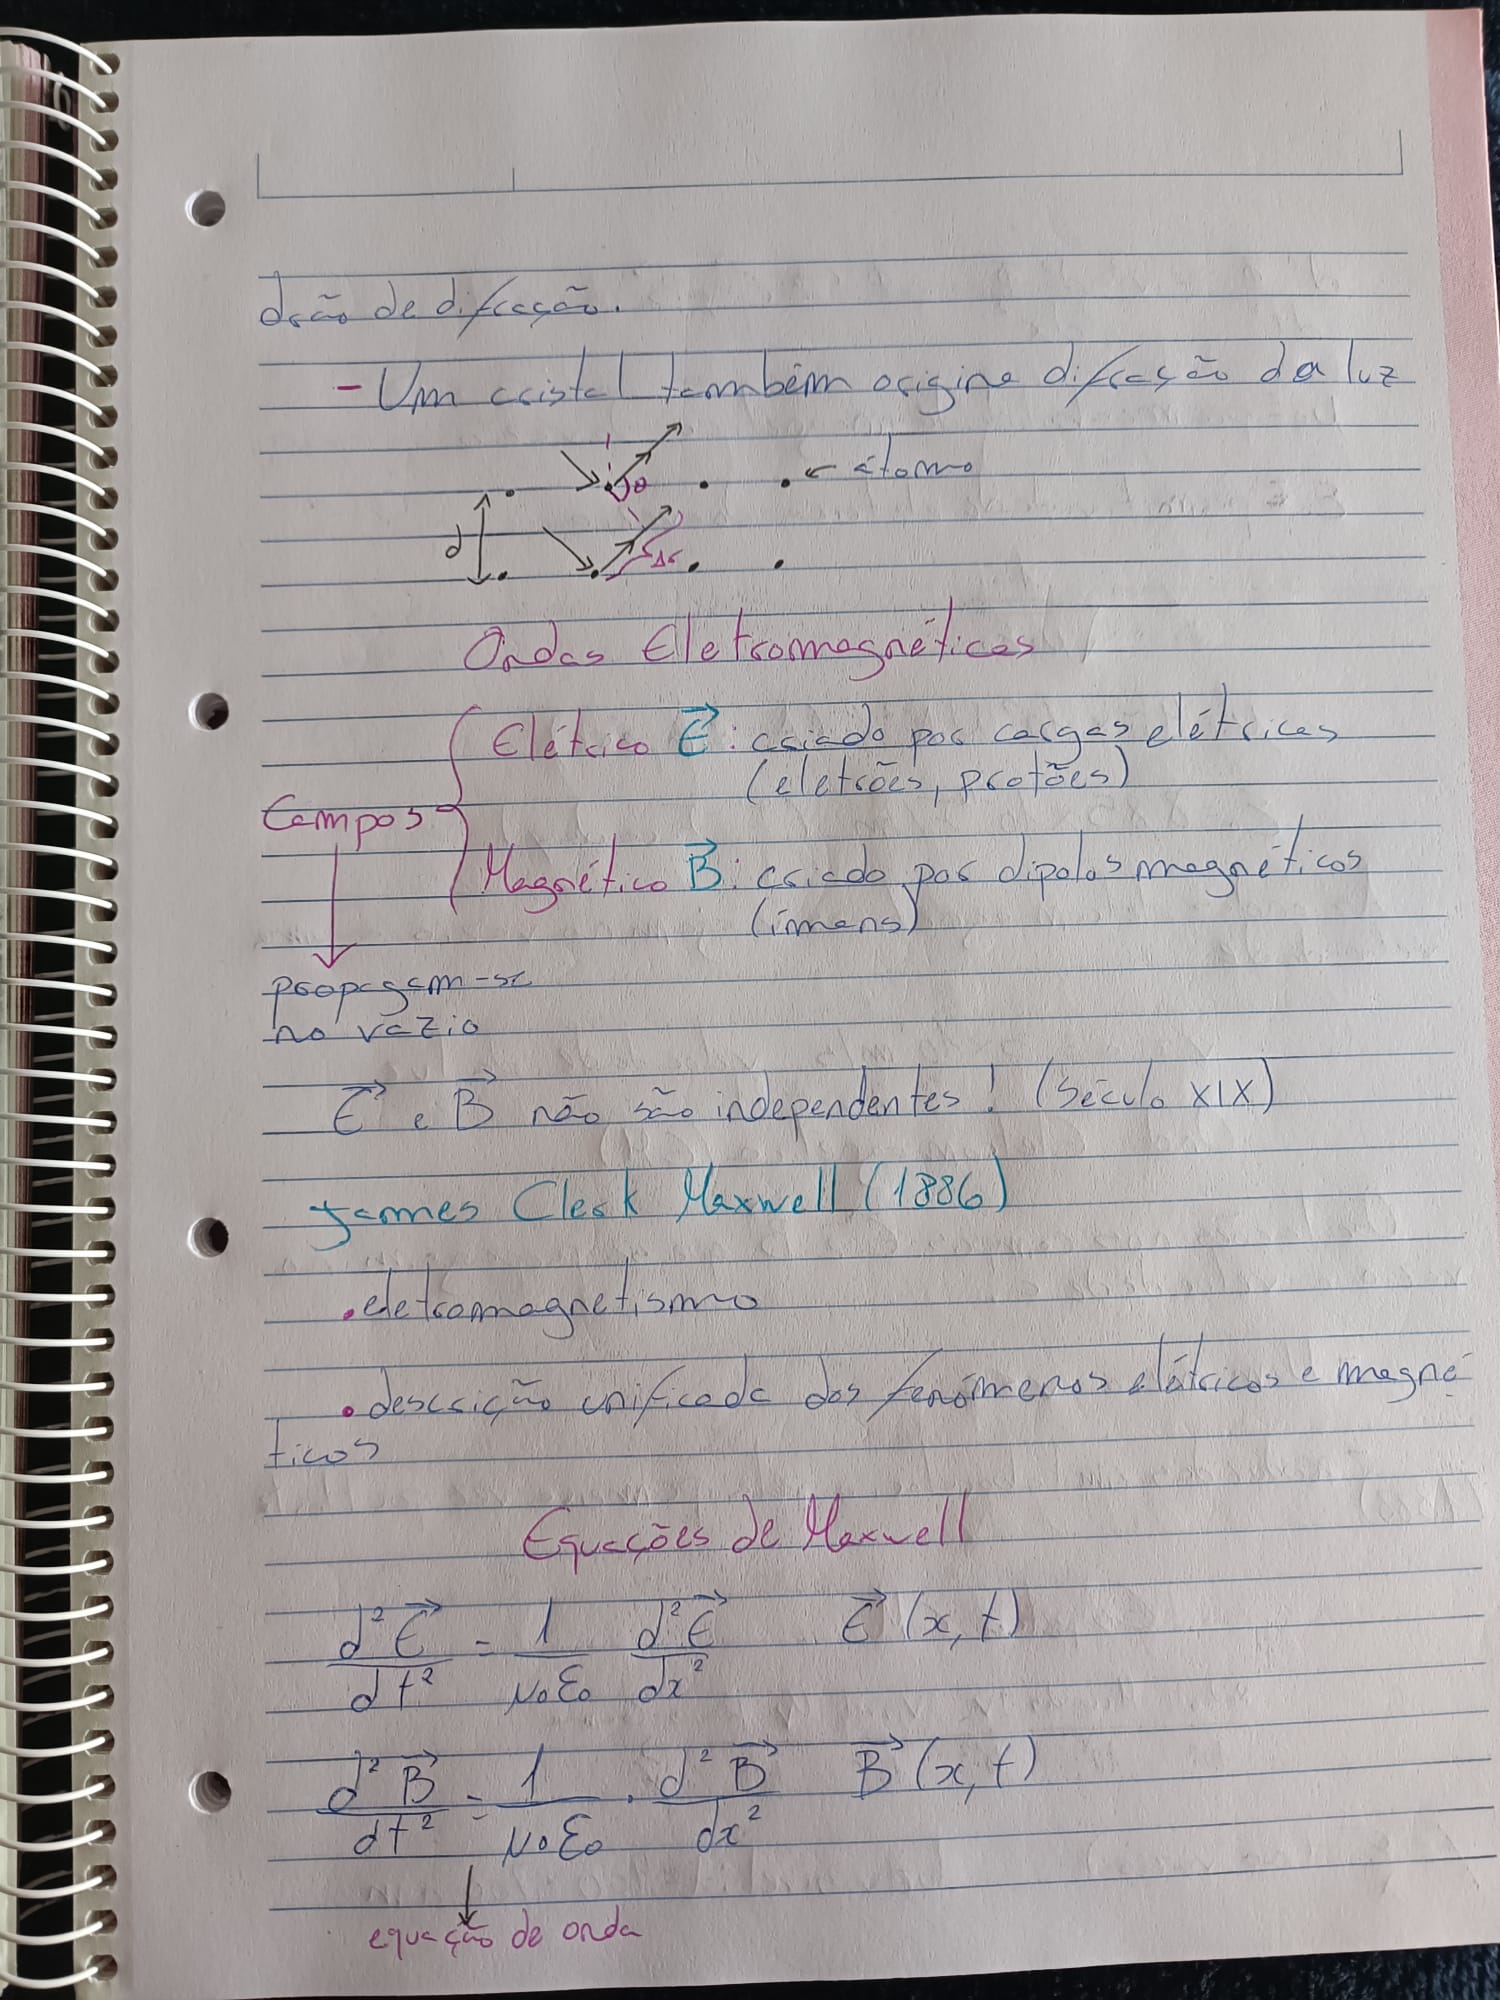 drão de difração.
- Um cristal também origina difração da luz
← átomo
θ
d
Δr
Ondas Eletromagnéticas
Elétrico E⃗ : criado por cargas elétricas
(eletrões, protões)
Campos
Magnético B⃗ : criado por dipolos magnéticos
(ímans)
propagam-se
no vazio
E⃗ e B⃗ não são independentes! (século XIX)
James Clerk Maxwell (1886)
. eletromagnetismo
. descrição unificada dos fenómenos elétricos e magné
ticos
Equações de Maxwell
d²E⃗/dt² = 1/μ₀ε₀ d²E⃗/dx² E⃗(x,t)
d²B⃗/dt² = 1/μ₀ε₀ . d²B⃗/dx² B⃗(x,t)
equação de onda